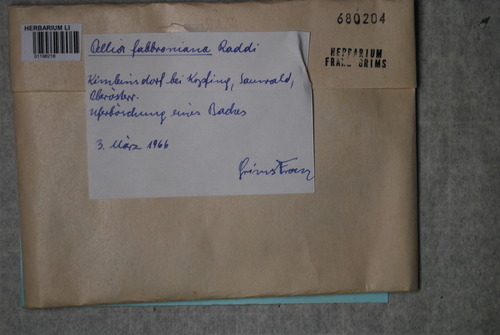 HERBARIUM LI
680204
HERBARIUM
FRANZ GRIMS
Pellia fabbroniana Raddi
bei Kopfing, Sauwald,
Oberösterr.
Uferböschung eines Baches
3. März 1966
Grims Franz